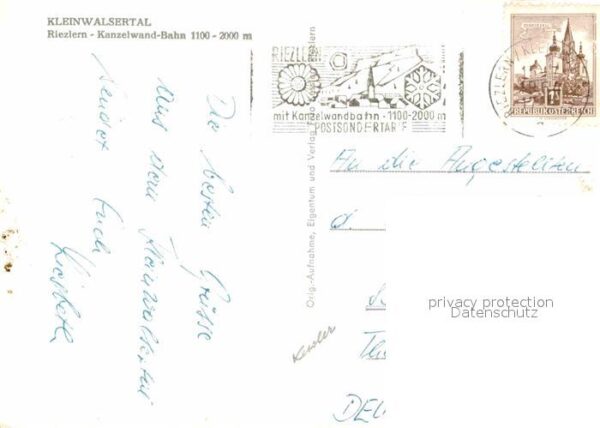 KLEINWALSERTAL
Riezlern - Kanzelwand-Bahn 1100 - 2000 m
RIEZLERN
mit Kanzelwandbahn · 1100-2000 m
POSTSONDERTARIF
REPUBLIK ÖSTERREICH
Orig.-Aufnahme, Eigentum und Verlag Foto
Riezlern
Die besten Grüsse
Aus dem
sendet Euch
An die Angestellten
d.
DEU
privacy protection
Datenschutz